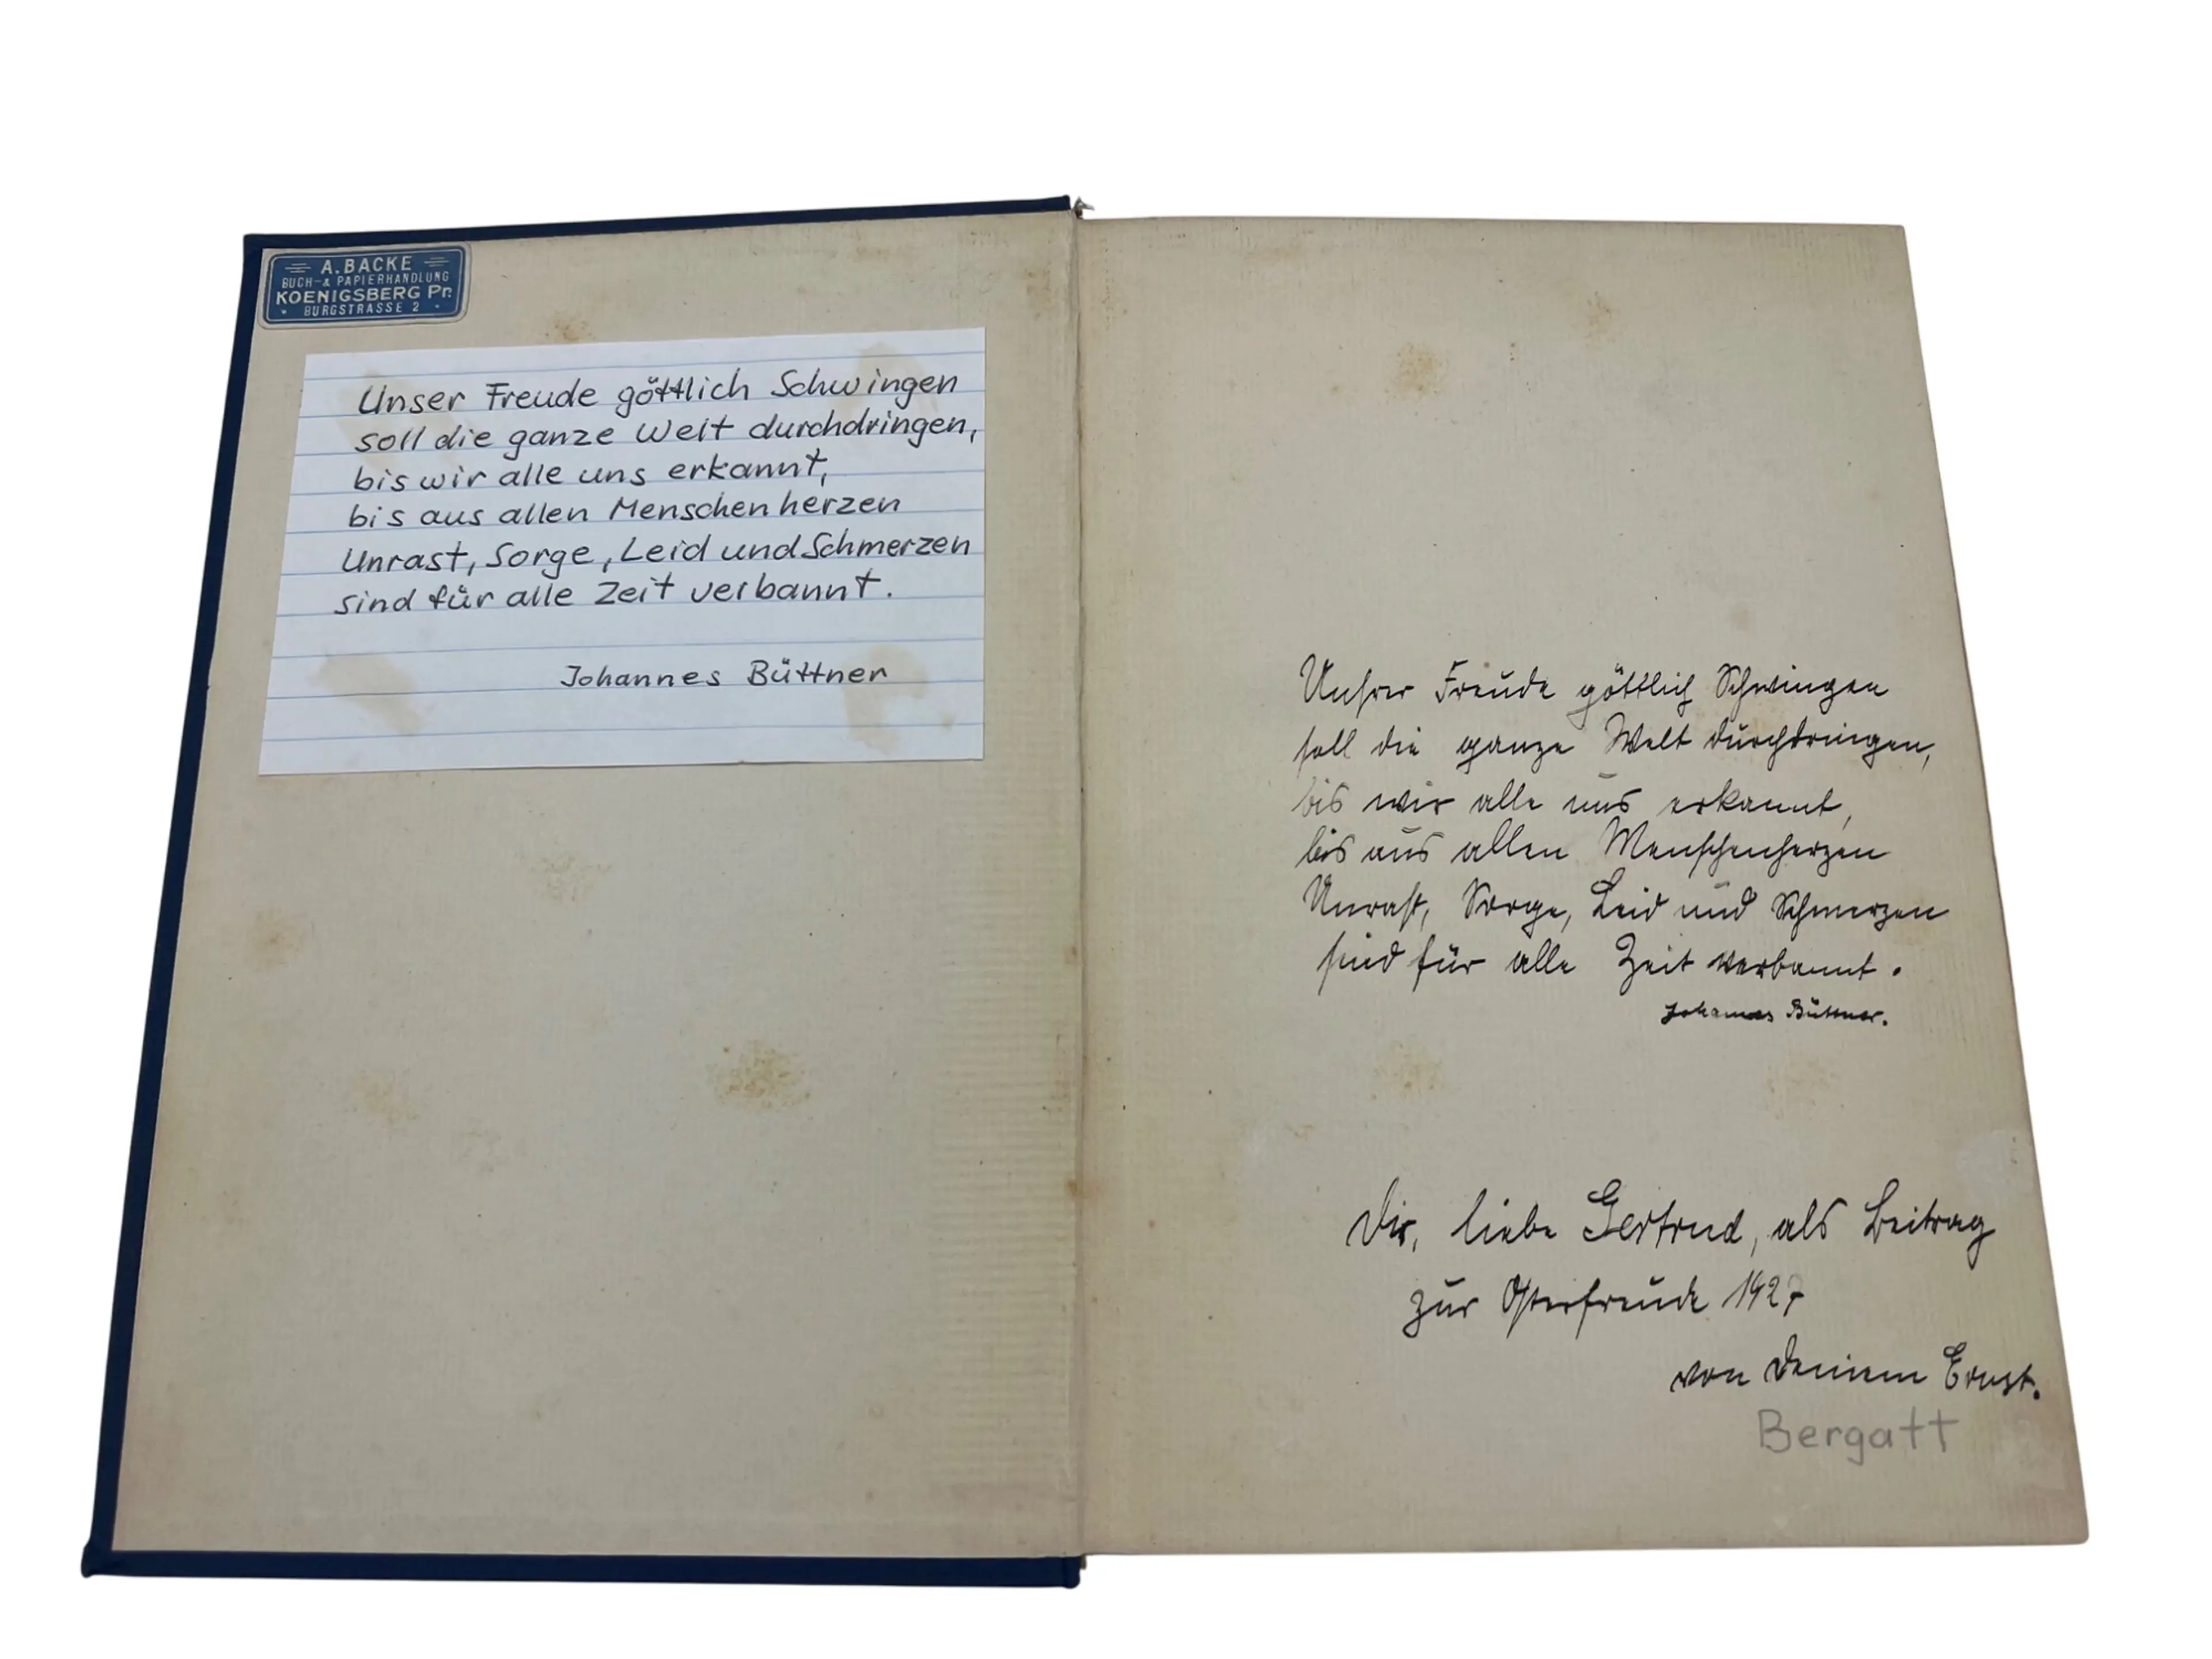 A. BACKE
BUCH- & PAPIERHANDLUNG
KOENIGSBERG Pr.
BURGSTRASSE 2
Unser Freude göttlich Schwingen
soll die ganze Welt durchdringen,
bis wir alle uns erkannt,
bis aus allen Menschenherzen
Unrast, Sorge, Leid und Schmerzen
sind für alle Zeit verbannt.
Johannes Büttner
Unsrer Freude göttlich Schwingen
soll die ganze Welt durchdringen,
bis wir alle uns erkannt,
bis aus allen Menschenherzen
Unrast, Sorge, Leid und Schmerzen
sind für alle Zeit verbannt.
Johannes Büttner.
Dir, liebe Gertrud, als Beitrag
zur Osterfreude 1927
von Deinem Ernst.
Bergatt